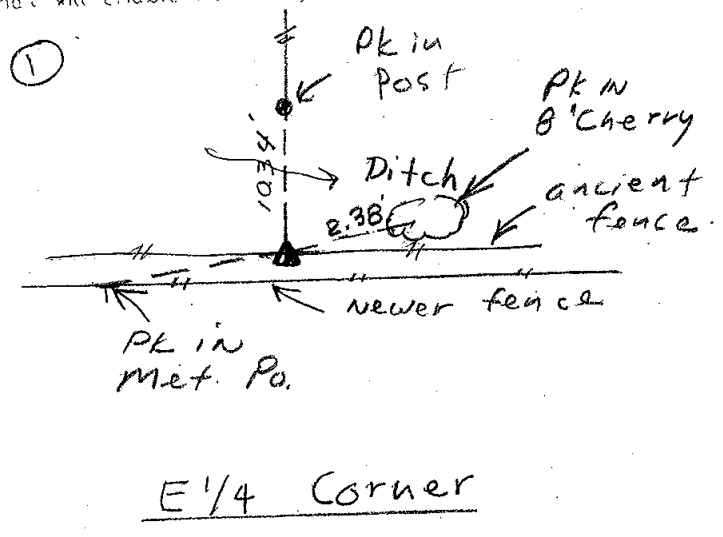 1
PK in
Post
PK IN
8" Cherry
10.34'
Ditch
ancient
fence
2.38'
Newer fence
PK in
Met. Po.
E 1/4 Corner